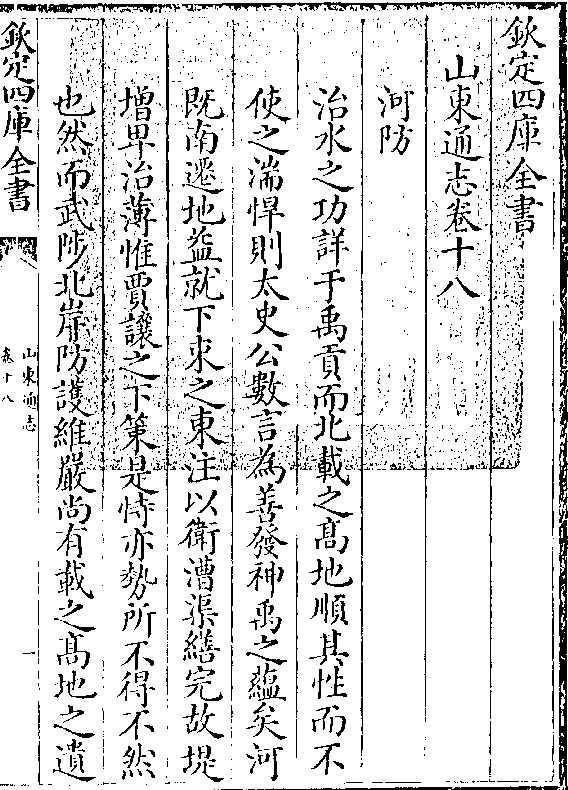 欽定四庫全書
山東通志卷十八
河防
治水之功詳于禹貢而北載之髙地順其性而不
使之湍悍則太史公數言為善發神禹之藴矣河
既南遷地益就下束之東注以衛漕渠繕完故堤
增卑治薄惟賈讓之下策是恃亦勢所不得不然
也然而武陟北岸防護維嚴尚有載之髙地之遺
欽定四庫全書
山東通志
卷十八
一